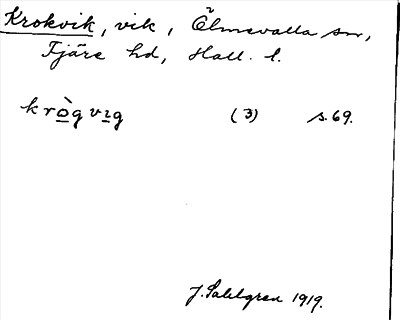 Krokvik, vik, Ölmevalla sn,
Fjäre hd, Hall. l.
kròg vıg (3) s. 69.
J. Sahlgren 1919.